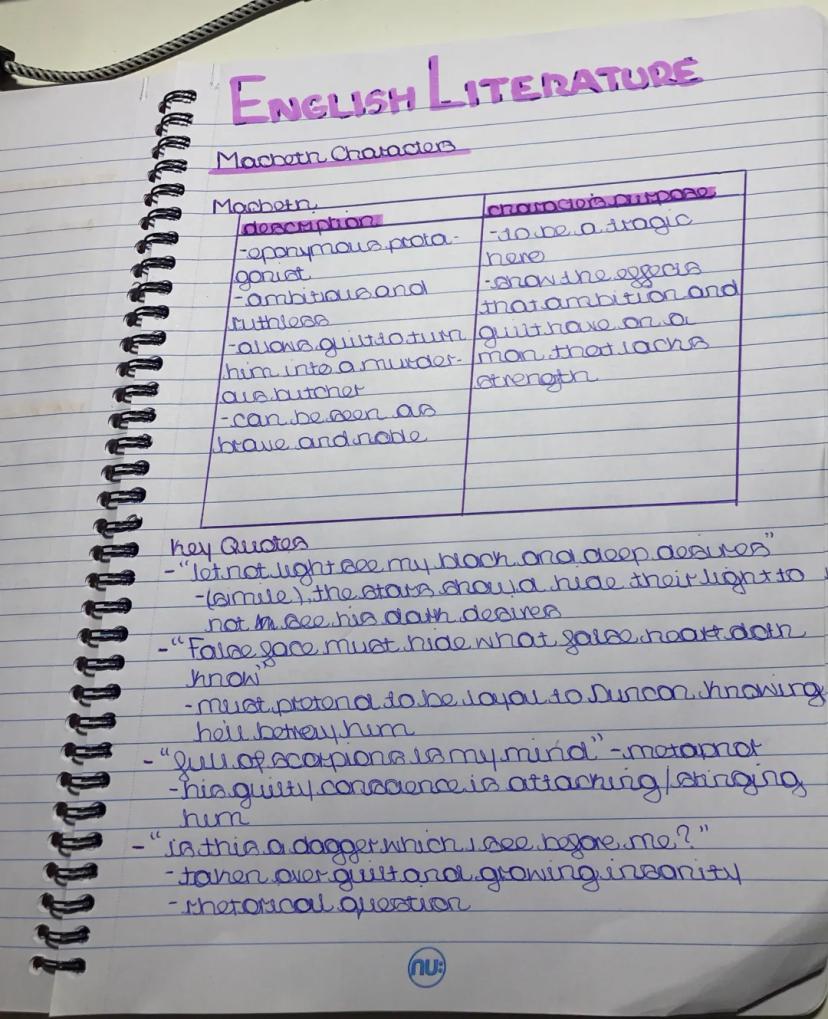 ENGLISH LITERATURE
Macbeth Characters
Macbeth
description
-eponymous prota-
gonist
-ambitious and
ruthless
-allows guilt to turn
him into a murder-
ous butcher
-can be seen as
brave and noble
character's purpose
-to be a tragic
hero
-show the effects
that ambition and
guilt have on a
man that lacks
strength
Key Quotes
-"let not light see my black and deep desires"
-(simile), the stars should hide their light to
not see his dark desires
-"False face must hide what false heart doth
know"
-must pretend to be loyal to Duncan knowing
he'll betray him
-"full of scorpions is my mind" -metaphor
-his guilty conscience is attacking/stinging
him
-"is this a dagger which I see before me?"
-taken over guilt and growing insanity
-rhetorical question
nu: